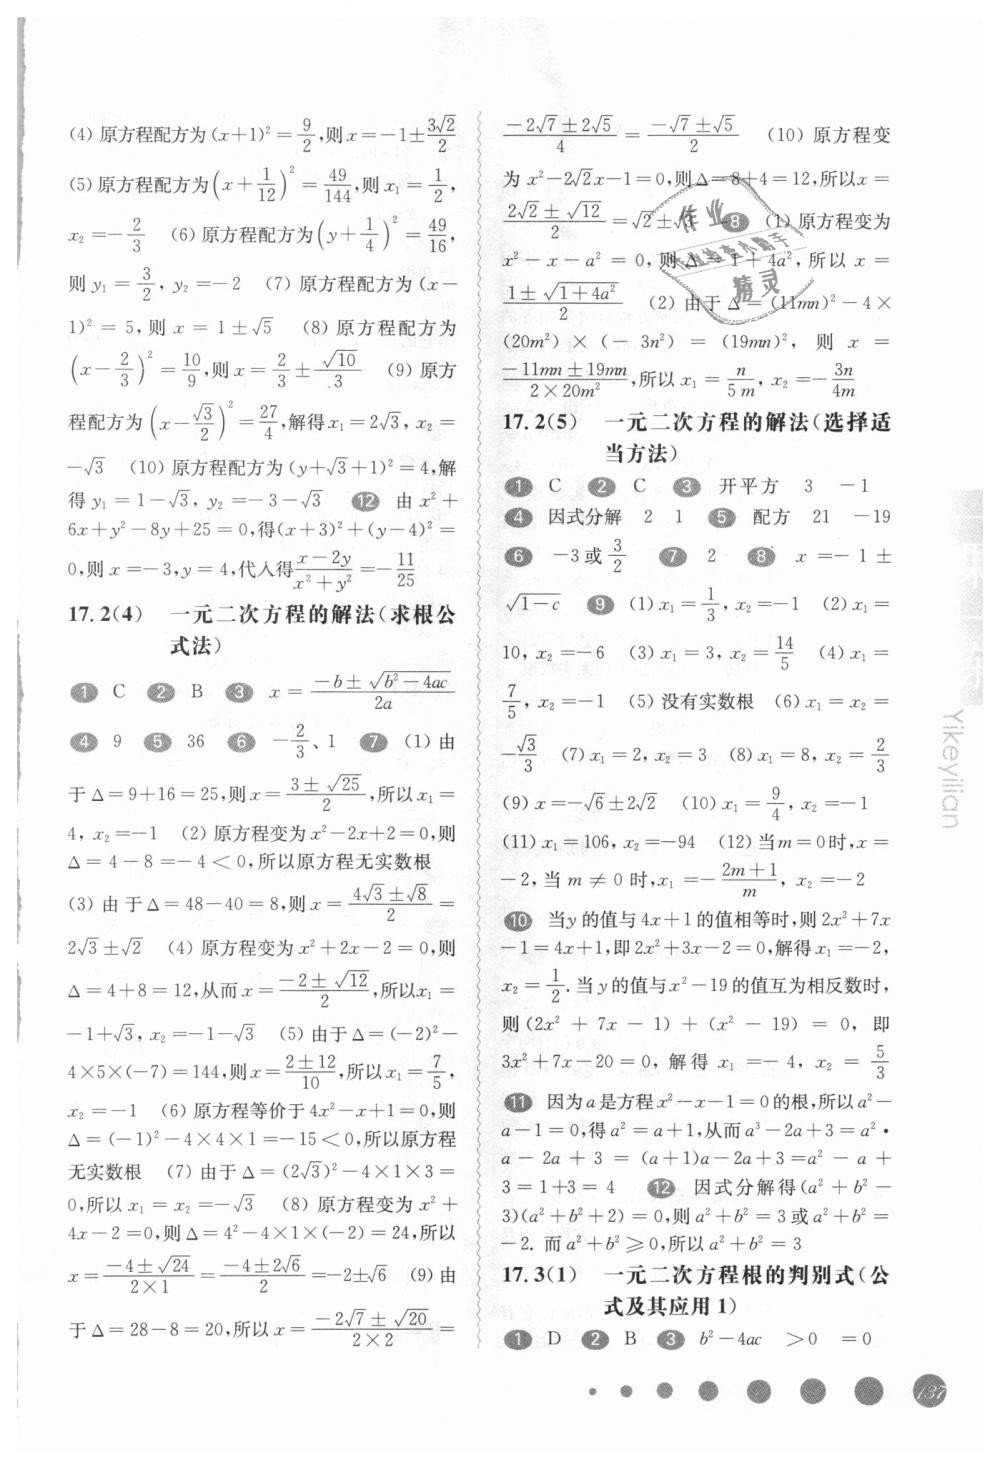 (4) 原方程配方为(x+1)²=9/2,则x=-1±3√2/2
(5) 原方程配方为(x+1/12)²=49/144,则x₁=1/2,
x₂=-2/3 (6) 原方程配方为(y+1/4)²=49/16,
则y₁=3/2, y₂=-2 (7) 原方程配方为(x-
1)²=5,则x=1±√5 (8) 原方程配方为
(x-2/3)²=10/9,则x=2/3±√10/3 (9) 原方
程配方为(x-√3/2)²=27/4,解得x₁=2√3, x₂=
-√3 (10) 原方程配方为(y+√3+1)²=4,解
得y₁=1-√3, y₂=-3-√3 12 由x²+
6x+y²-8y+25=0,得(x+3)²+(y-4)²=
0,则x=-3,y=4,代入得(x-2y)/(x²+y²)=-11/25
17.2(4) 一元二次方程的解法(求根公
式法)
1 C 2 B 3 x=(-b±√(b²-4ac))/2a
4 9 5 36 6 -2/3、1 7 (1) 由
于Δ=9+16=25,则x=(3±√25)/2,所以x₁=
4, x₂=-1 (2) 原方程变为x²-2x+2=0,则
Δ=4-8=-4<0,所以原方程无实数根
(3) 由于Δ=48-40=8,则x=(4√3±√8)/2=
2√3±√2 (4) 原方程变为x²+2x-2=0,则
Δ=4+8=12,从而x=(-2±√12)/2,所以x₁=
-1+√3, x₂=-1-√3 (5) 由于Δ=(-2)²-
4×5×(-7)=144,则x=(2±12)/10,所以x₁=7/5,
x₂=-1 (6) 原方程等价于4x²-x+1=0,则
Δ=(-1)²-4×4×1=-15<0,所以原方程
无实数根 (7) 由于Δ=(2√3)²-4×1×3=
0,所以x₁=x₂=-√3 (8) 原方程变为x²+
4x-2=0,则Δ=4²-4×1×(-2)=24,所以
x=(-4±√24)/(2×1)=(-4±2√6)/2=-2±√6 (9) 由
于Δ=28-8=20,所以x=(-2√7±√20)/(2×2)=
(-2√7±2√5)/4=(-√7±√5)/2 (10) 原方程变
为x²-2√2x-1=0,则Δ=8+4=12,所以x=
(2√2±√12)/2=√2±√3 8 (1) 原方程变为
x²-x-a²=0,则Δ=1+4a²,所以x=
(1±√(1+4a²))/2 (2) 由于Δ=(11mn)²-4×
(20m²)×(-3n²)=(19mn)²,则x=
(-11mn±19mn)/(2×20m²),所以x₁=n/5m, x₂=-3n/4m
17.2(5) 一元二次方程的解法(选择适
当方法)
1 C 2 C 3 开平方 3 -1
4 因式分解 2 1 5 配方 21 -19
6 -3或3/2 7 2 8 x=-1±
√(1-c) 9 (1) x₁=1/3, x₂=-1 (2) x₁=
10, x₂=-6 (3) x₁=3, x₂=14/5 (4) x₁=
7/5, x₂=-1 (5) 没有实数根 (6) x₁=x₂=
-√3/3 (7) x₁=2, x₂=3 (8) x₁=8, x₂=2/3
(9) x=-√6±2√2 (10) x₁=9/4, x₂=-1
(11) x₁=106, x₂=-94 (12) 当m=0时,x=
-2,当m≠0时,x₁=-(2m+1)/m, x₂=-2
10 当y的值与4x+1的值相等时,则2x²+7x
-1=4x+1,即2x²+3x-2=0,解得x₁=-2,
x₂=1/2.当y的值与x²-19的值互为相反数时,
则(2x²+7x-1)+(x²-19)=0,即
3x²+7x-20=0,解得x₁=-4, x₂=5/3
11 因为a是方程x²-x-1=0的根,所以a²-
a-1=0,得a²=a+1,从而a³-2a+3=a²•
a-2a+3=(a+1)a-2a+3=a²-a+
3=1+3=4 12 因式分解得(a²+b²-
3)(a²+b²+2)=0,则a²+b²=3或a²+b²=
-2.而a²+b²≥0,所以a²+b²=3
17.3(1) 一元二次方程根的判别式(公
式及其应用1)
1 D 2 B 3 b²-4ac >0 =0
Yikeyilian
137
作业
精灵